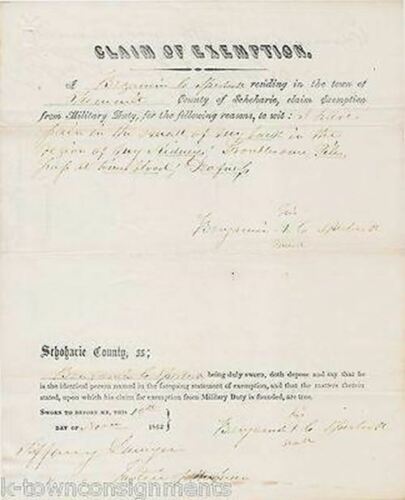 CLAIM OF EXEMPTION.
I Benjamin C residing in the town of
County of Schoharie, claim exemption
from Military Duty, for the following reasons, to wit: I have
pain in the small of my back in the
region of my Kidneys, Troublesome Piles,
Deafness
his
Benjamin C
mark
Schoharie County, ss;
Benjamin C being duly sworn, doth depose and say that he
is the identical person named in the foregoing statement of exemption, and that the matters therein
stated, upon which his claim for exemption from Military Duty is founded, are true.
SWORN TO BEFORE ME, THIS 10th
DAY OF 1862
his
Benjamin C
mark
Tiffany Lawyer
k-townconsignments